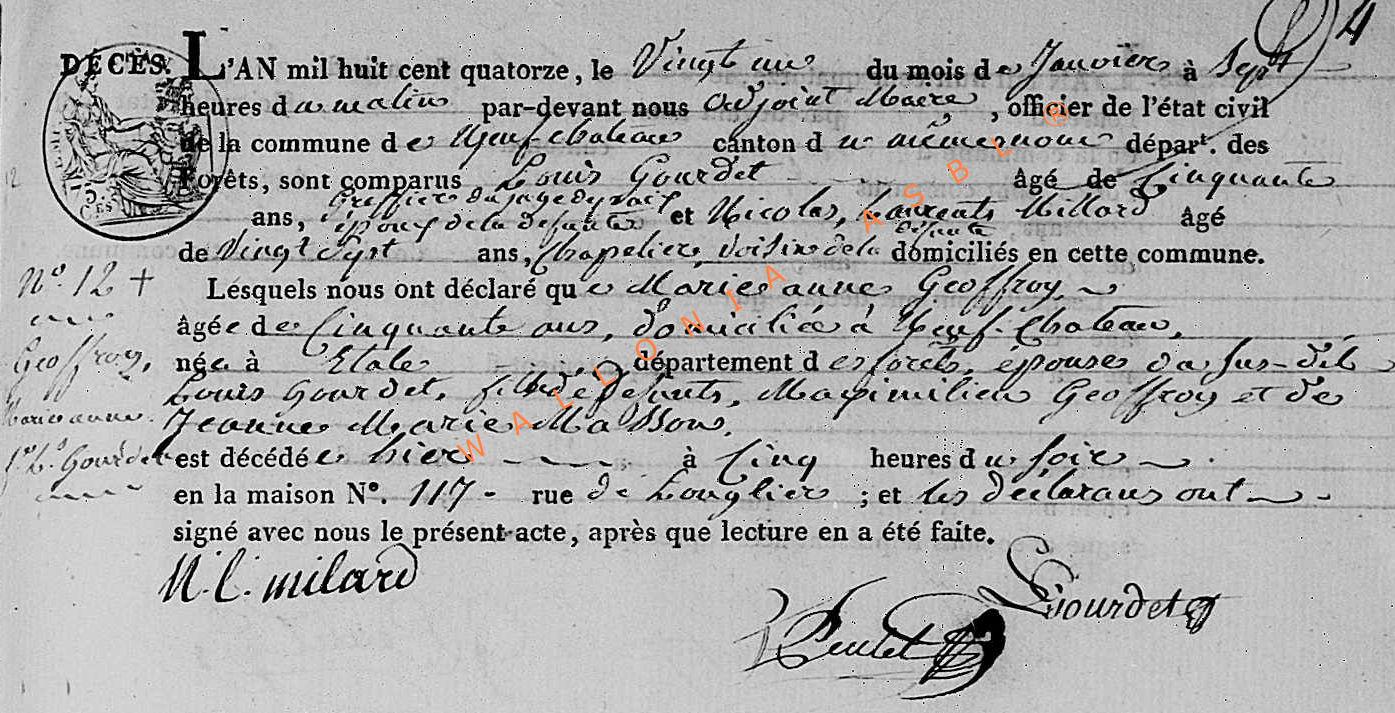 4
DÉCÈS. L'AN mil huit cent quatorze, le Vingt un du mois de Janvier à Sept
heures du matin par-devant nous adjoint Maire, officier de l'état civil
de la commune de Neuf-chateau canton du même nom départ. des
Forêts, sont comparus Louis Gourdet âgé de Cinquante
ans, Greffier du juge de paix époux de la defunte et Nicolas, Laurents Millard âgé
de Vingt Sept ans, Chapelier, voisin de la défunte domiciliés en cette commune.
N.o 12 +
Lesquels nous ont déclaré que Marie anne Geoffroy,
âgée de Cinquante ans, domiciliée à Neuf-Chateau,
Geoffroy,
née à Etale, département des forêts, épouse du sus-dit
Louis Gourdet, fille de defunts, Maximilien Geoffroy et de
Marie anne.
Jeanne Marie Masson,
Gourdet
est décédée hier à Cinq heures du soir
en la maison N.o 117 - rue de Longlier ; et les déclarans ont
signé avec nous le présent acte, après que lecture en a été faite.
N. l. milard
LGourdet
WALLONIA ASBL ®